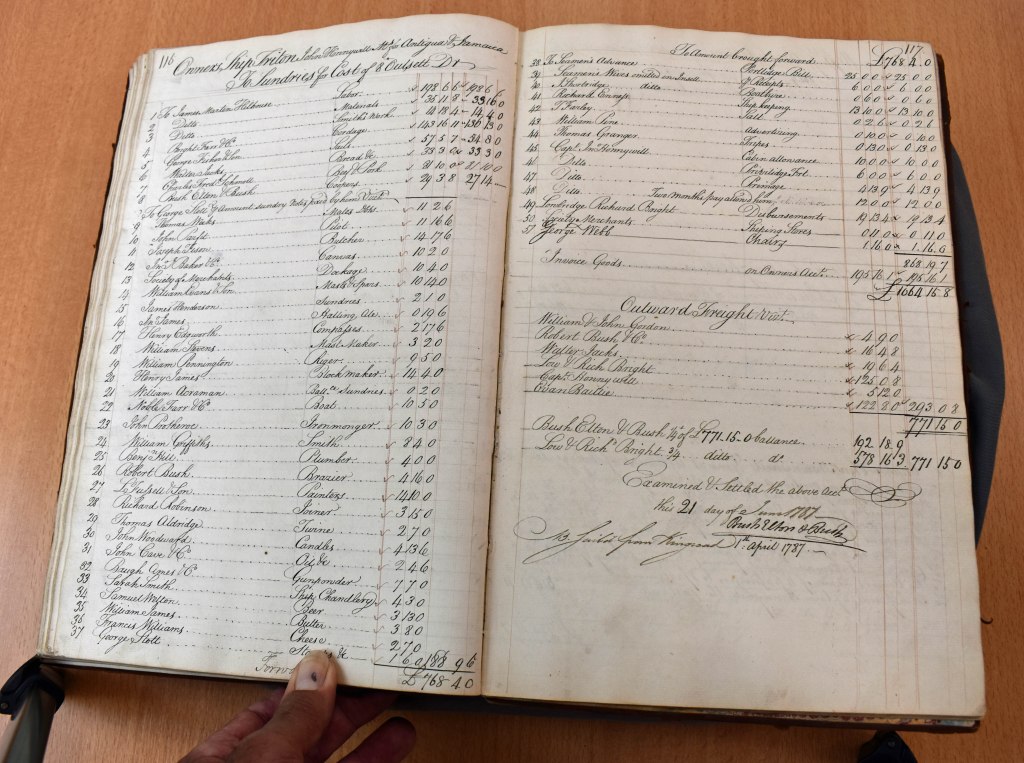 116
Owners, Ship Triton John Honnywill Mr. for Antigua & Jamaica
To Sundries for Cost of & Outsett Dr
1 To James Marten Hilhouse Labor 198 6 6 198 6 6
2 Ditto Materials 35 11 8 33 16 0
3 Ditto Smiths Work 14 4 0
4 Bright Farr & Co. Cordage 143 16 11 136 13 0
5 George Fisher & Son Sails 37 5 7 34 8 0
6 Walter Jacks Bread &c 33 3 0 33 3 0
7 Beef & Pork 21 10 0 21 10 0
8 Bush Elton & Bush Coopers 29 3 8 27 14
To George Stott for Amount sundry Notes paid by him Vizt.
9 Thomas Waks 11 2 6
10 John Swift Pilot 11 16 6
11 Joseph Fisson Butcher 14 17 6
12 Jno. Baker & Co. Canvas 10 2 0
13 Society of Merchants Dockage 10 4 0
14 William Evans & Son Masts & Spars 10 14 0
15 James Henderson Sundries 2 1 0
16 Jn James Halling, Ale 0 19 6
17 Henry Edgworth Compasses 2 17 6
18 William Stevens Mast Maker 3 2 0
19 William Pennington Riger 9 5 0
20 Henry James Block maker 14 4 0
21 William Acraman Bag. Sundries 0 2 0
22 Noble Farr & Co. Boat 10 5 0
23 John Prothero Ironmonger 10 3 0
24 William Griffiths Smith 8 4 0
25 Benjn. Hill Plumber 4 0 0
26 Robert Bush Brazier 4 16 0
27 & Son Painters 14 10 0
28 Richard Robinson Joiner 3 15 0
29 Thomas Aldridge Twine 2 7 0
30 John Woodward Candles 4 13 6
31 John Cave & Co. Oil &c 2 4 6
32 Baugh Ames & Co. Gunpowder 7 7 0
33 Sarah Smith Ship Chandlery 4 3 0
34 Samuel Weston Beer 3 13 0
35 William James Butter 3 8 0
36 Francis Williams Cheese 2 7 0
37 George Stott &c 1 6 0 188 9 6
Forwd £768 4 0
117
To Amount brought forward £768 4 0
38 To Seamen's Advance Portledge Bill 25 0 0 25 0 0
39 Seamen's Wives omitted on Triton & Receipts 6 0 0 6 0 0
40 ditto Boathyre 6 0 0 6 0 0
41 Richard Ship keeping 13 10 0 13 10 0
42 T. Farley Salt 0 6 0 0 6 0
43 William Pine Advertizing 0 2 6 0 2 6
44 Thomas Granger Tripes 0 13 0 0 13 0
45 Capt. Jn Honnywill Cabin allowance 10 0 0 10 0 0
46 Ditto 6 0 0 6 0 0
47 Ditto Primage 4 13 9 4 13 9
48 Ditto Two months pay 12 0 0 12 0 0
49 Lowbridge Richard Bright Disbursements 19 13 4 19 13 4
50 Society Merchants Shiping Fares 0 11 0 0 11 0
51 George Webb Chairs 1 16 0 1 16 6
868 19 7
Invoice Goods on Owners Acct. 195 16 1 195 16 1
£1064 15 8
Outward Freight Vizt.
William & John Gordon 4 9 0
Robert Bush & Co. 16 4 8
Walter Jacks 19 6 4
Low & Rich Bright 125 0 8
Capt. Honnywill 5 12 0
Evan Baillie 122 8 0 293 0 8
771 15 0
Bush Elton & Bush ¼ of £771.15.0 ballance 192 18 9
Low & Rich Bright ¾ ditto do 578 16 3 771 15 0
Examined & Settled the above Acct.
this 21 day of June 1787
Bush Elton & Bush
NB Sailed from Kingroad 1st April 1787